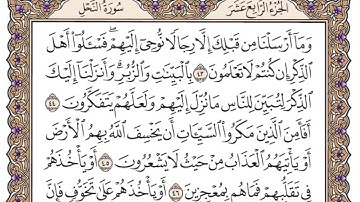 الجزء الرابع عشر سورة النحل
وَمَا أَرْسَلْنَا مِن قَبْلِكَ إِلَّا رِجَالًا نُّوحِي إِلَيْهِمْ ۖ فَسْـَٔلُوٓا۟ أَهْلَ
الذِّكْرِ إِن كُنتُمْ لَا تَعْلَمُونَ ٤٣ بِالْبَيِّنَاتِ وَالزُّبُرِ ۗ وَأَنزَلْنَا إِلَيْكَ
الذِّكْرَ لِتُبَيِّنَ لِلنَّاسِ مَا نُزِّلَ إِلَيْهِمْ وَلَعَلَّهُمْ يَتَفَكَّرُونَ ٤٤
أَفَأَمِنَ الَّذِينَ مَكَرُوا السَّيِّئَاتِ أَن يَخْسِفَ اللَّهُ بِهِمُ الْأَرْضَ
أَوْ يَأْتِيَهُمُ الْعَذَابُ مِنْ حَيْثُ لَا يَشْعُرُونَ ٤٥ أَوْ يَأْخُذَهُمْ
فِي تَقَلُّبِهِمْ فَمَا هُم بِمُعْجِزِينَ ٤٦ أَوْ يَأْخُذَهُمْ عَلَىٰ تَخَوُّفٍ فَإِنَّ